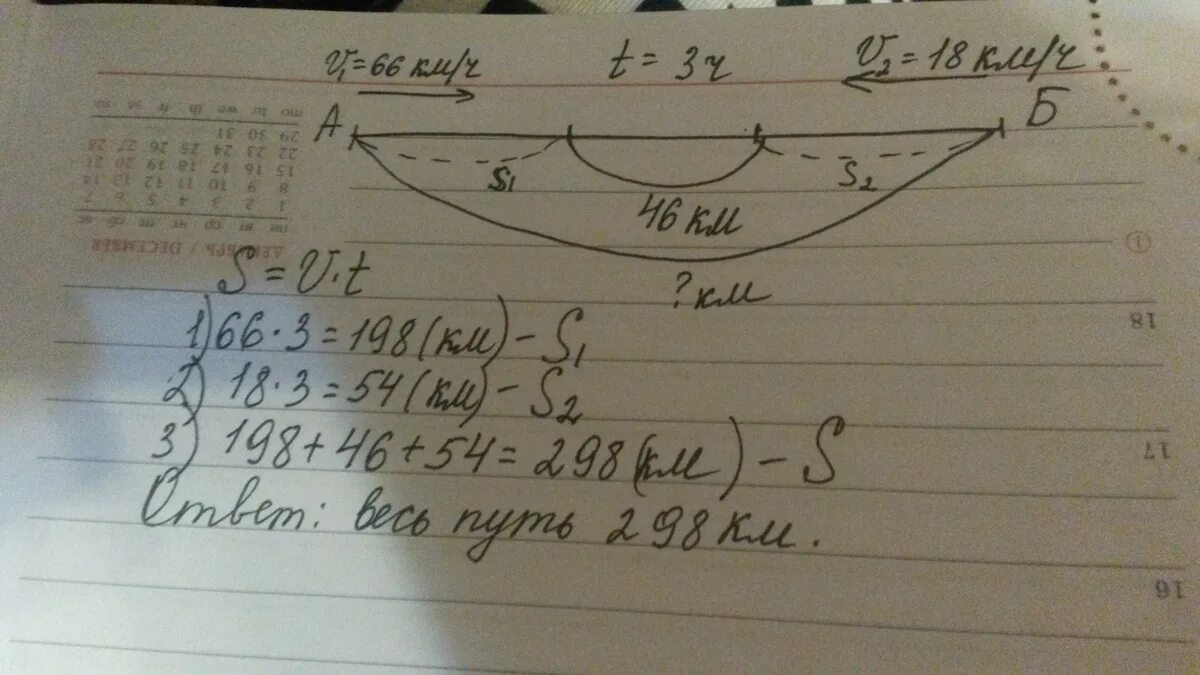 V₁ = 66 км/ч t = 3ч V₂ = 18 км/ч
А Б
S₁ S₂
46 км
? км
S = V · t
1) 66 · 3 = 198 (км) – S₁
2) 18 · 3 = 54 (км) – S₂
3) 198 + 46 + 54 = 298 (км) – S
Ответ: весь путь 298 км.
ДЕКАБРЬ / DECEMBER
пн вт ср чт пт сб вс
1 2 3 4 5 6 7
8 9 10 11 12 13 14
15 16 17 18 19 20 21
22 23 24 25 26 27 28
29 30 31
mo tu we th fr sa su
18
17
16